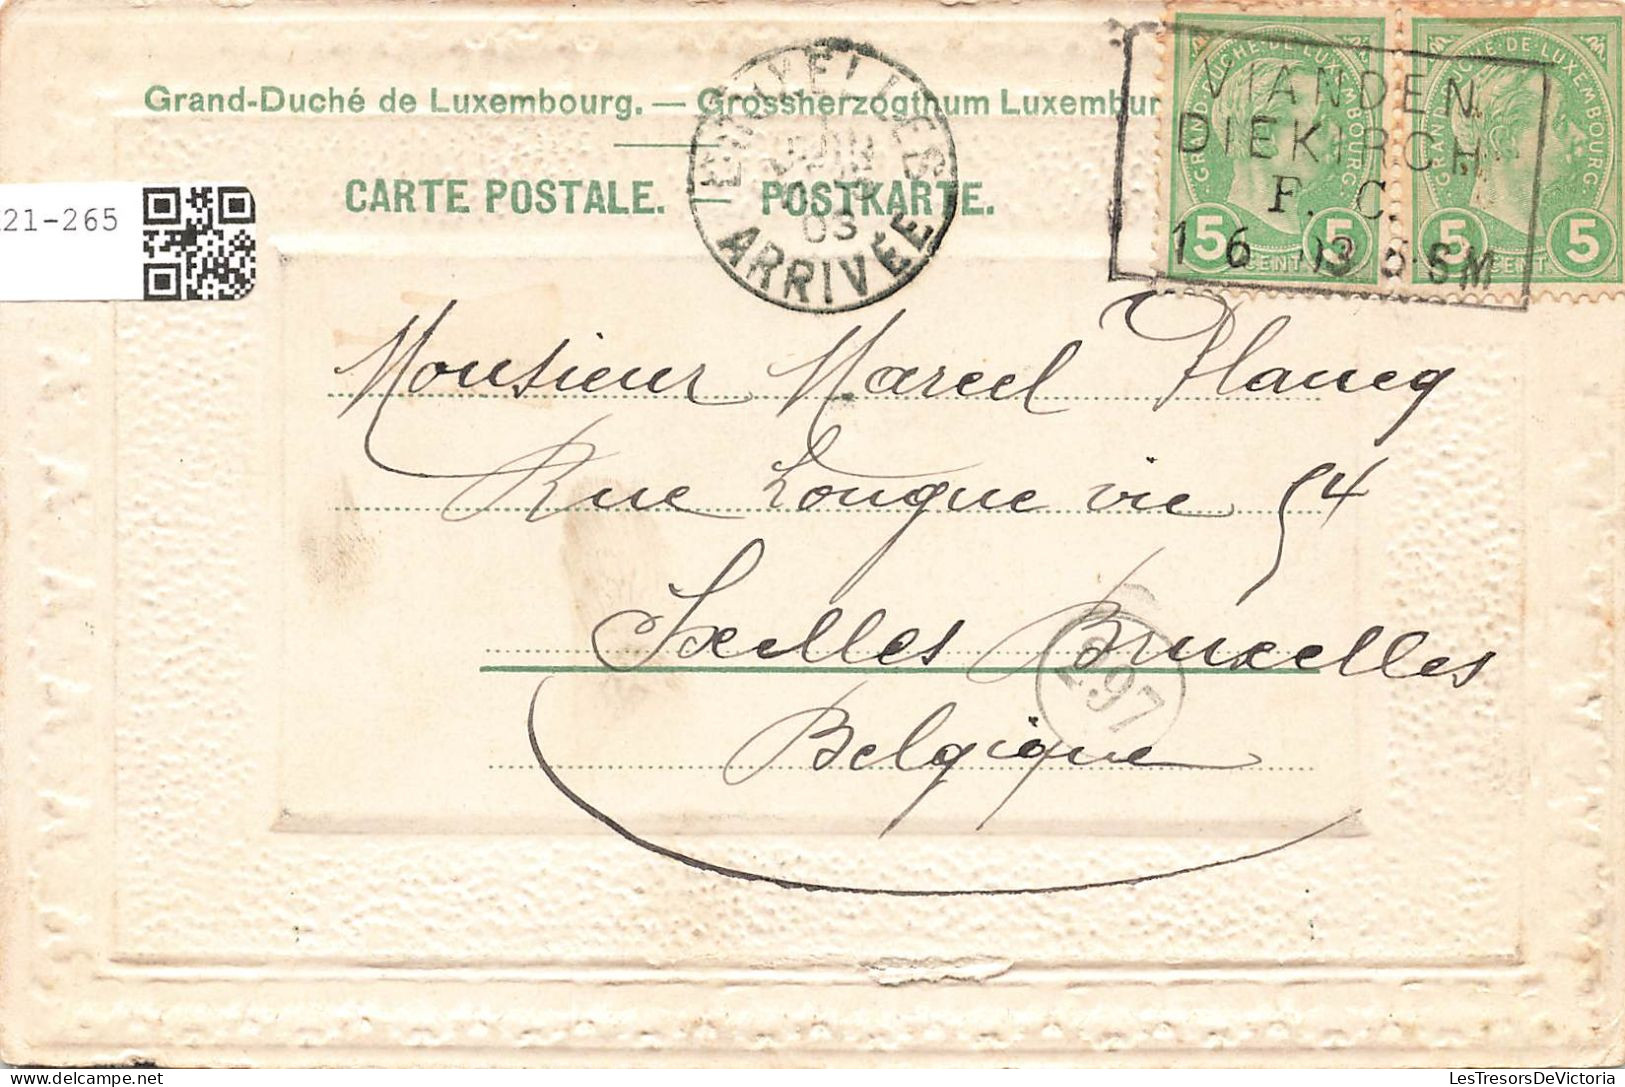 Grand-Duché de Luxembourg. — Grossherzogthum Luxembur
CARTE POSTALE. POSTKARTE.
21-265
ARRIVÉE
03
GRAND-DUCHÉ-DE-LUXEMBOURG.
5 CENT 5
GRAND-DUCHÉ-DE-LUXEMBOURG.
5 CENT 5
VIANDEN
DIEKIRCH
F. C.
Monsieur Marcel Plancq
Rue Longue vie 54
Ixelles Bruxelles
Belgique
297
LesTresorsDeVictoria